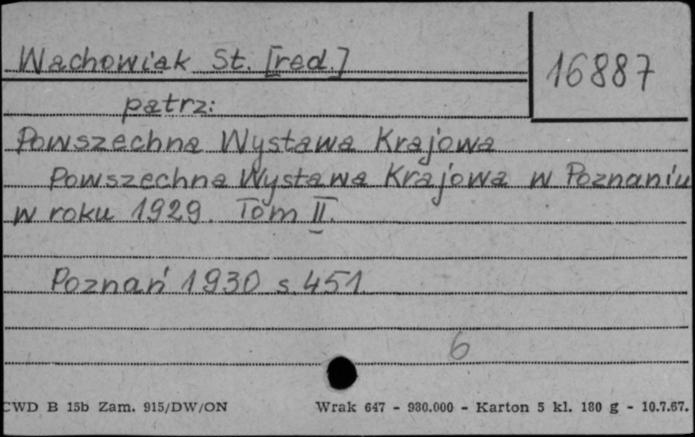 Wachowiak St. [red.]
16887
patrz:
Powszechna Wystawa Krajowa
Powszechna Wystawa Krajowa w Poznaniu
w roku 1929. Tom II.
Poznań 1930 s. 451.
6
CWD B 15b Zam. 915/DW/ON Wrak 647 - 930.000 - Karton 5 kl. 180 g - 10.7.67.